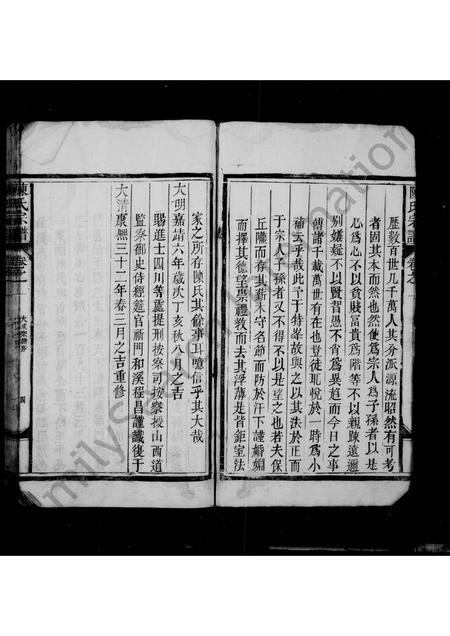 歷數百世几千萬人其分派源流昭然有可考
者固其本而然也然使為宗人為子孫者以是
心為心不以貧賤富貴為階等不以親踈遠邇
別嫌疑不以賢智愚不肖為異趨而今日之事
傳諸千載萬世有在也豈徒耽悅於一時為小
補云乎哉此予于特峯故與之以其法於正而
于宗人子孫者又不得不以是望之也若夫保
丘隴而存其薪木守名節而防於汗下謹婚媾
而擇其德望崇禮教而去其浮薄是皆鉅室法
家之所存陳氏其餘事其噫信乎其大哉
大明嘉靖六年歲次丁亥秋八月之吉
賜進士四川等處提刑按察司按察按山西道
監察御史侍經筵官祁門和溪程昌謹識後于
大清康熙三十二年春三月之吉重修
陳氏宗譜
卷之一
四
陳氏宗譜
卷之一